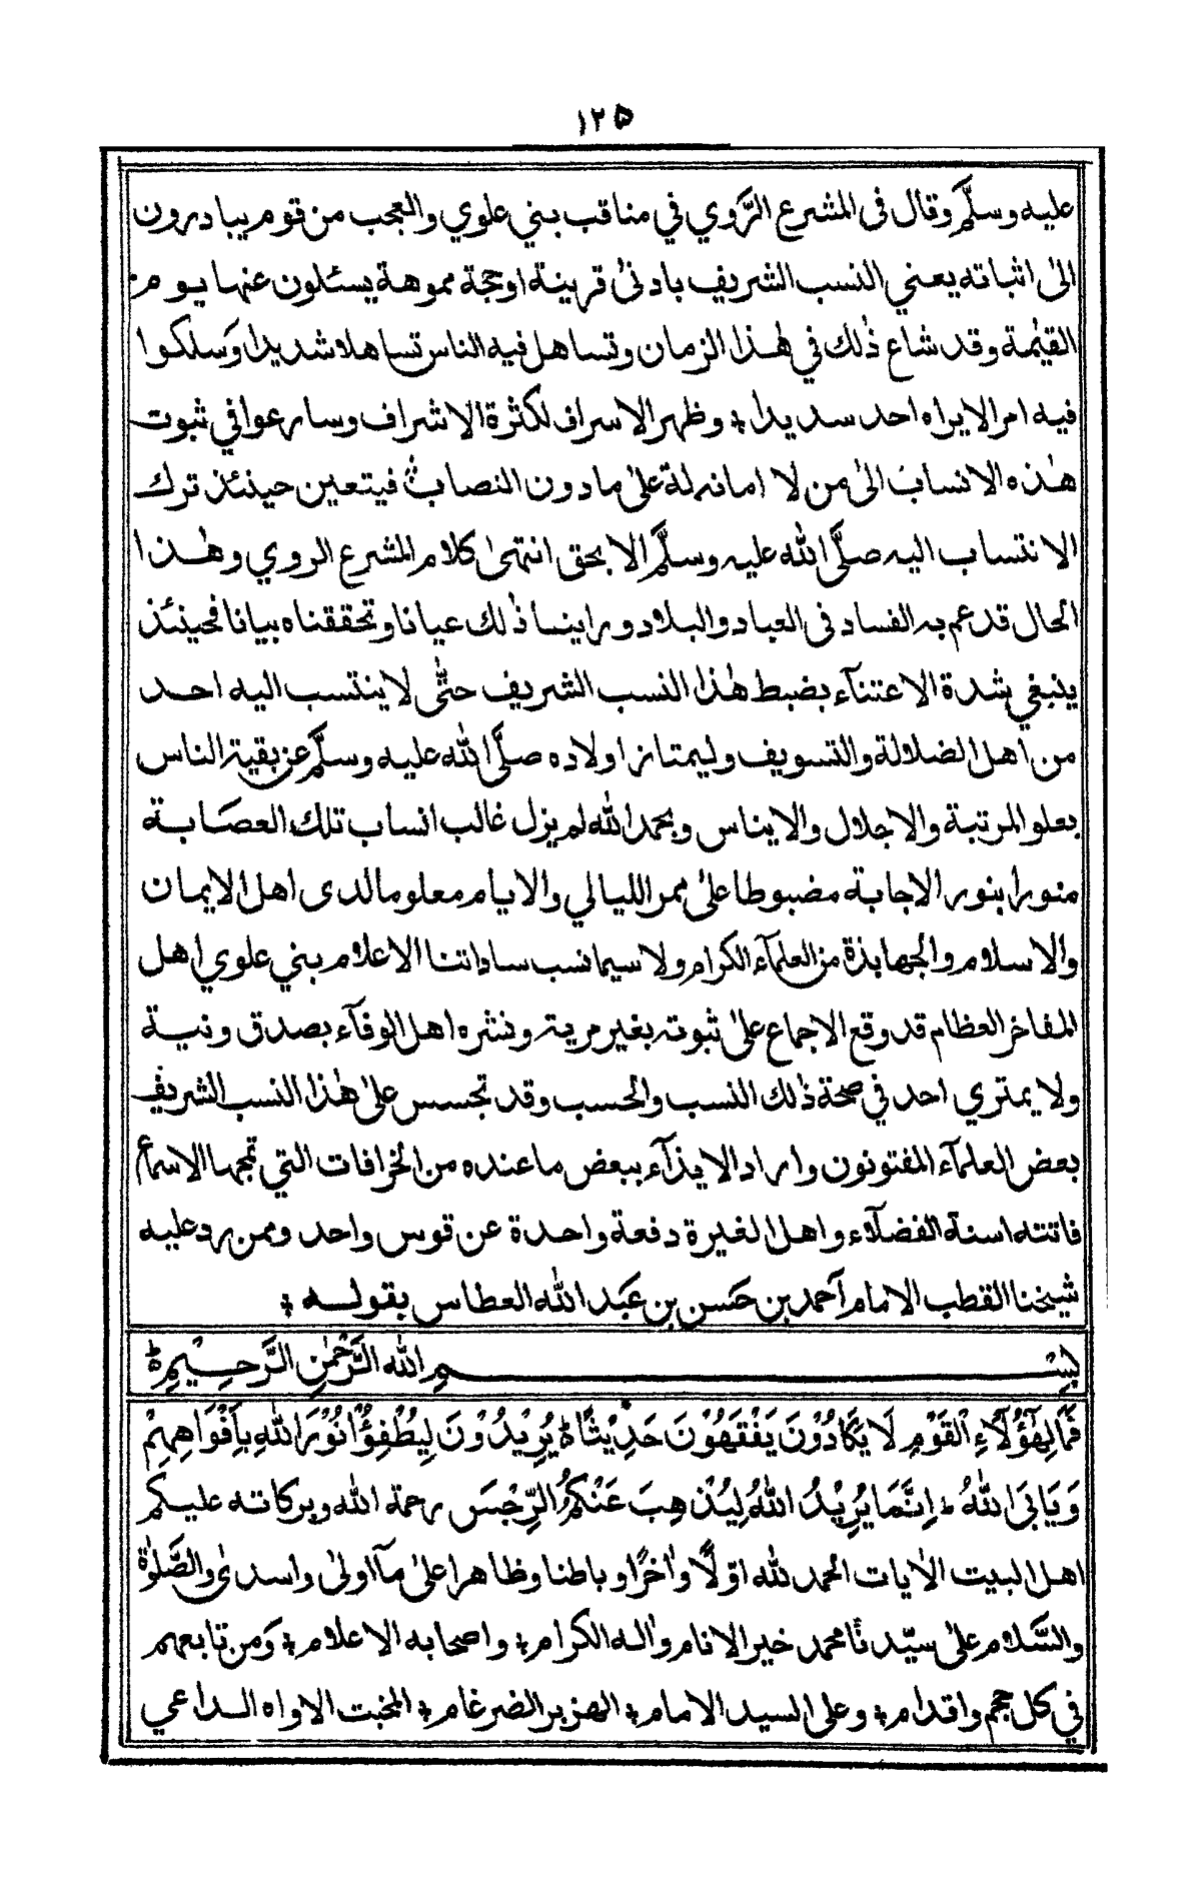 ١٢٥
عليه وسلّم وقال فى المشرع الرَّوي في مناقب بني علوي والعجب من قوم يبادرون
الىٰ اثباته يعني النسب الشريف بادنىٰ قرينة اوحجة مموهة يسئلون عنها يوم
القيٰمة وقد شاع ذٰلك في هٰذا الزمان وتساهل فيه الناس تساهلا شديدا وَسلكوا
فيه امر الايراه احد سديدا ؛ وظهر الاسراف لكثرة الاشراف وسارعوا في ثبوت
هٰذه الانسابَ الىٰ من لا امانه لهٗ علىٰ مادون النصاب فيتعين حينئذ ترك
الانتساب اليه صلَّى الله عليه وسلَّم الا بحق انتهىٰ كلام المشرع الروي وهٰذا
الحال قد عم به الفساد فى العباد والبلاد وراينا ذٰلك عيانا وتحققناه بيانا فحينئذ
ينبغي شدة الاعتنآء بضبط هٰذا النسب الشريف حتّٰى لا ينتسب اليه احد
من اهل الضلالة والتسويف وليمتاز اولاده صلَّى الله عليه وسلَّم عن بقية الناس
بعلو المرتبة والاجلال والايناس وبحمد الله لم يزل غالب انساب تلك العصَابة
منورا بنور الاجابة مضبوطا علىٰ ممر الليالي والايام معلوما لدى اهل الايمان
والاسلام والجهابذة من العلمآء الكرام ولاسيما نسب ساداتنا الاعلام بني علوي اهل
المفاخر العظام قد وقع الاجماع علىٰ ثبوته بغير مرية ونشره اهل الوفآء بصدق ونية
ولا يمتري احد في صحة ذٰلك النسب والحسب وقد تجسس علىٰ هٰذا النسب الشريف
بعض العلمآء المفتونون واراد الايذآء ببعض ما عنده من الخرافات التي تمجها الاسماع
فاتته اسنة الفضلآء واهل الغيرة دفعة واحدة عن قوس واحد وممن رد عليه
شيخنا القطب الامام آحمد بن حَسن بن عَبد الله العطاس بقوله ؛
بِسْمِ الله الرَّحْمٰنِ الرَّحِيْمِ ط
فَمَالِهٰٓؤُلَآءِ الْقَوْمِ لَا يَكَادُوْنَ يَفْقَهُوْنَ حَدِيْثًا ط يُرِيْدُوْنَ لِيُطْفِؤُا نُوْرَ اللهِ بِاَفْوَاهِهِمْ
وَيَابَى اللهُ ۔ اِنَّمَا يُرِيْدُ اللهُ لِيُذْهِبَ عَنْكُمُ الرِّجْسَ رحمة الله وبركاته عليكم
اهل البيت الاٰيات الحمد لله اوّلًا واٰخرًا وباطنا وظاهرا علىٰ مآ اولىٰ واسدىٰ والصَّلوٰة
والسَّلام علىٰ سيّدنا محمد خير الانام واٰله الكرام ؛ واصحابه الاعلام ؛ وَمن تابعهم
في كل حجم واقدام ؛ وعلى السيد الامام ؛ الهزبر الضرغام ؛ المخبت الاواه الداعي